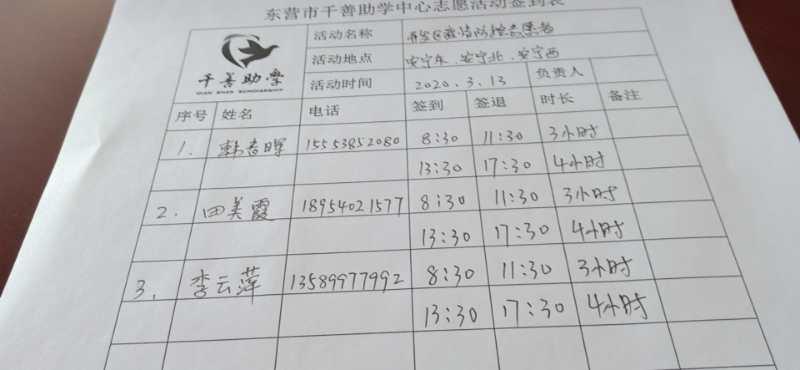 东营市千善助学中心志愿活动签到表
千善助学
QIAN SHAN SCHOLARSHIP
活动名称 开发区疫情防控志愿者
活动地点 安宁东、安宁北、安宁西
活动时间 2020.3.13 负责人
序号 姓名 电话 签到 签退 时长 备注
1. 韩春晖 15553852080 8:30 11:30 3小时
13:30 17:30 4小时
2. 田美霞 18954021577 8:30 11:30 3小时
13:30 17:30 4小时
3. 李云萍 13589977992 8:30 11:30 3小时
13:30 17:30 4小时